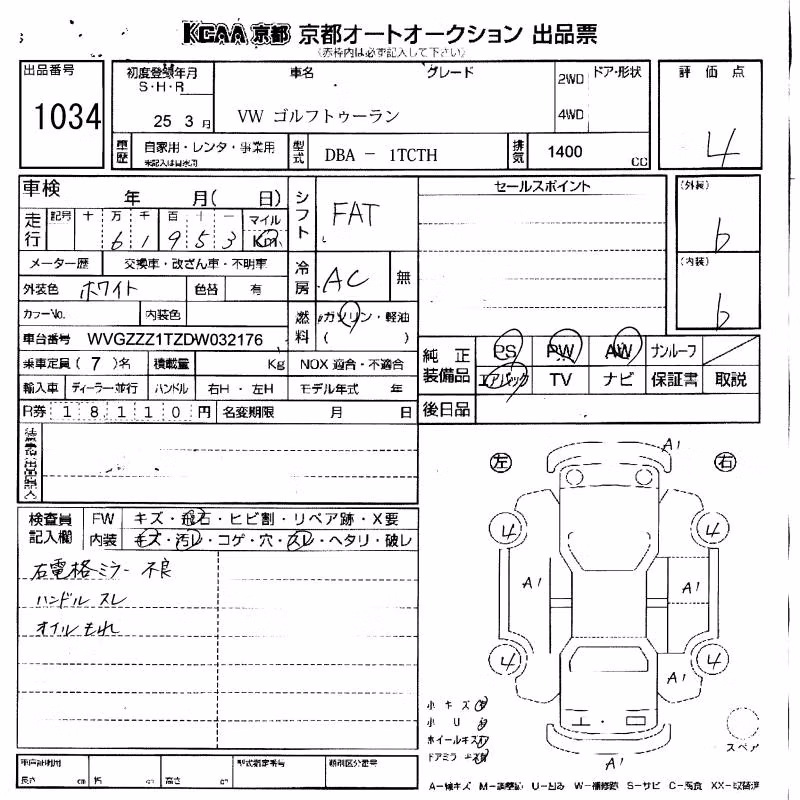 KCAA 京都 京都オートオークション 出品票
(赤枠内は必ず記入して下さい)
出品番号
1034
初度登録年月
S・H・R
25 3 月
車名
グレード
VW ゴルフトゥーラン
2WD
4WD
ドア・形状
評価点
4
車歴
自家用・レンタ・事業用
未記入は自家用
型式
DBA － 1TCTH
排気
1400
cc
車検
年 月( 日)
走行
記号 十 万 千 百 十 一 マイル
6 1 9 5 3 Km
シフト
FAT
セールスポイント
(外装)
b
(内装)
b
メーター歴 交換車・改ざん車・不明車
冷房
AC
無
外装色 ホワイト 色替 有
カラーNo. 内装色
燃料
ガソリン・軽油
( )
車台番号 WVGZZZ1TZDW032176
乗車定員(7)名 積載量 Kg NOX 適合・不適合
輸入車 ディーラー・並行 ハンドル 右H・左H モデル年式 年
R券 1 8 1 1 0 円 名変期限 月 日
純正装備品
PS PW AW サンルーフ
エアバック TV ナビ 保証書 取説
後日品
検査員記入欄
FW キズ・飛石・ヒビ割・リペア跡・X要
内装 キズ・汚レ・コゲ・穴・スレ・ヘタリ・破レ
右電格ミラー 不良
ハンドル スレ
オイルもれ
左
右
A1
4
4
A1
A1
4
4
A1
A1
小キズ
小U
ホイールキズ
ドアミラーキズ
スペア
車庫証明用
長さ cm 幅 cm 高さ cm
型式指定番号
類別区分番号
A－線キズ M－調整跡 U－凹み W－補修跡 S－サビ C－腐食 XX－取替済